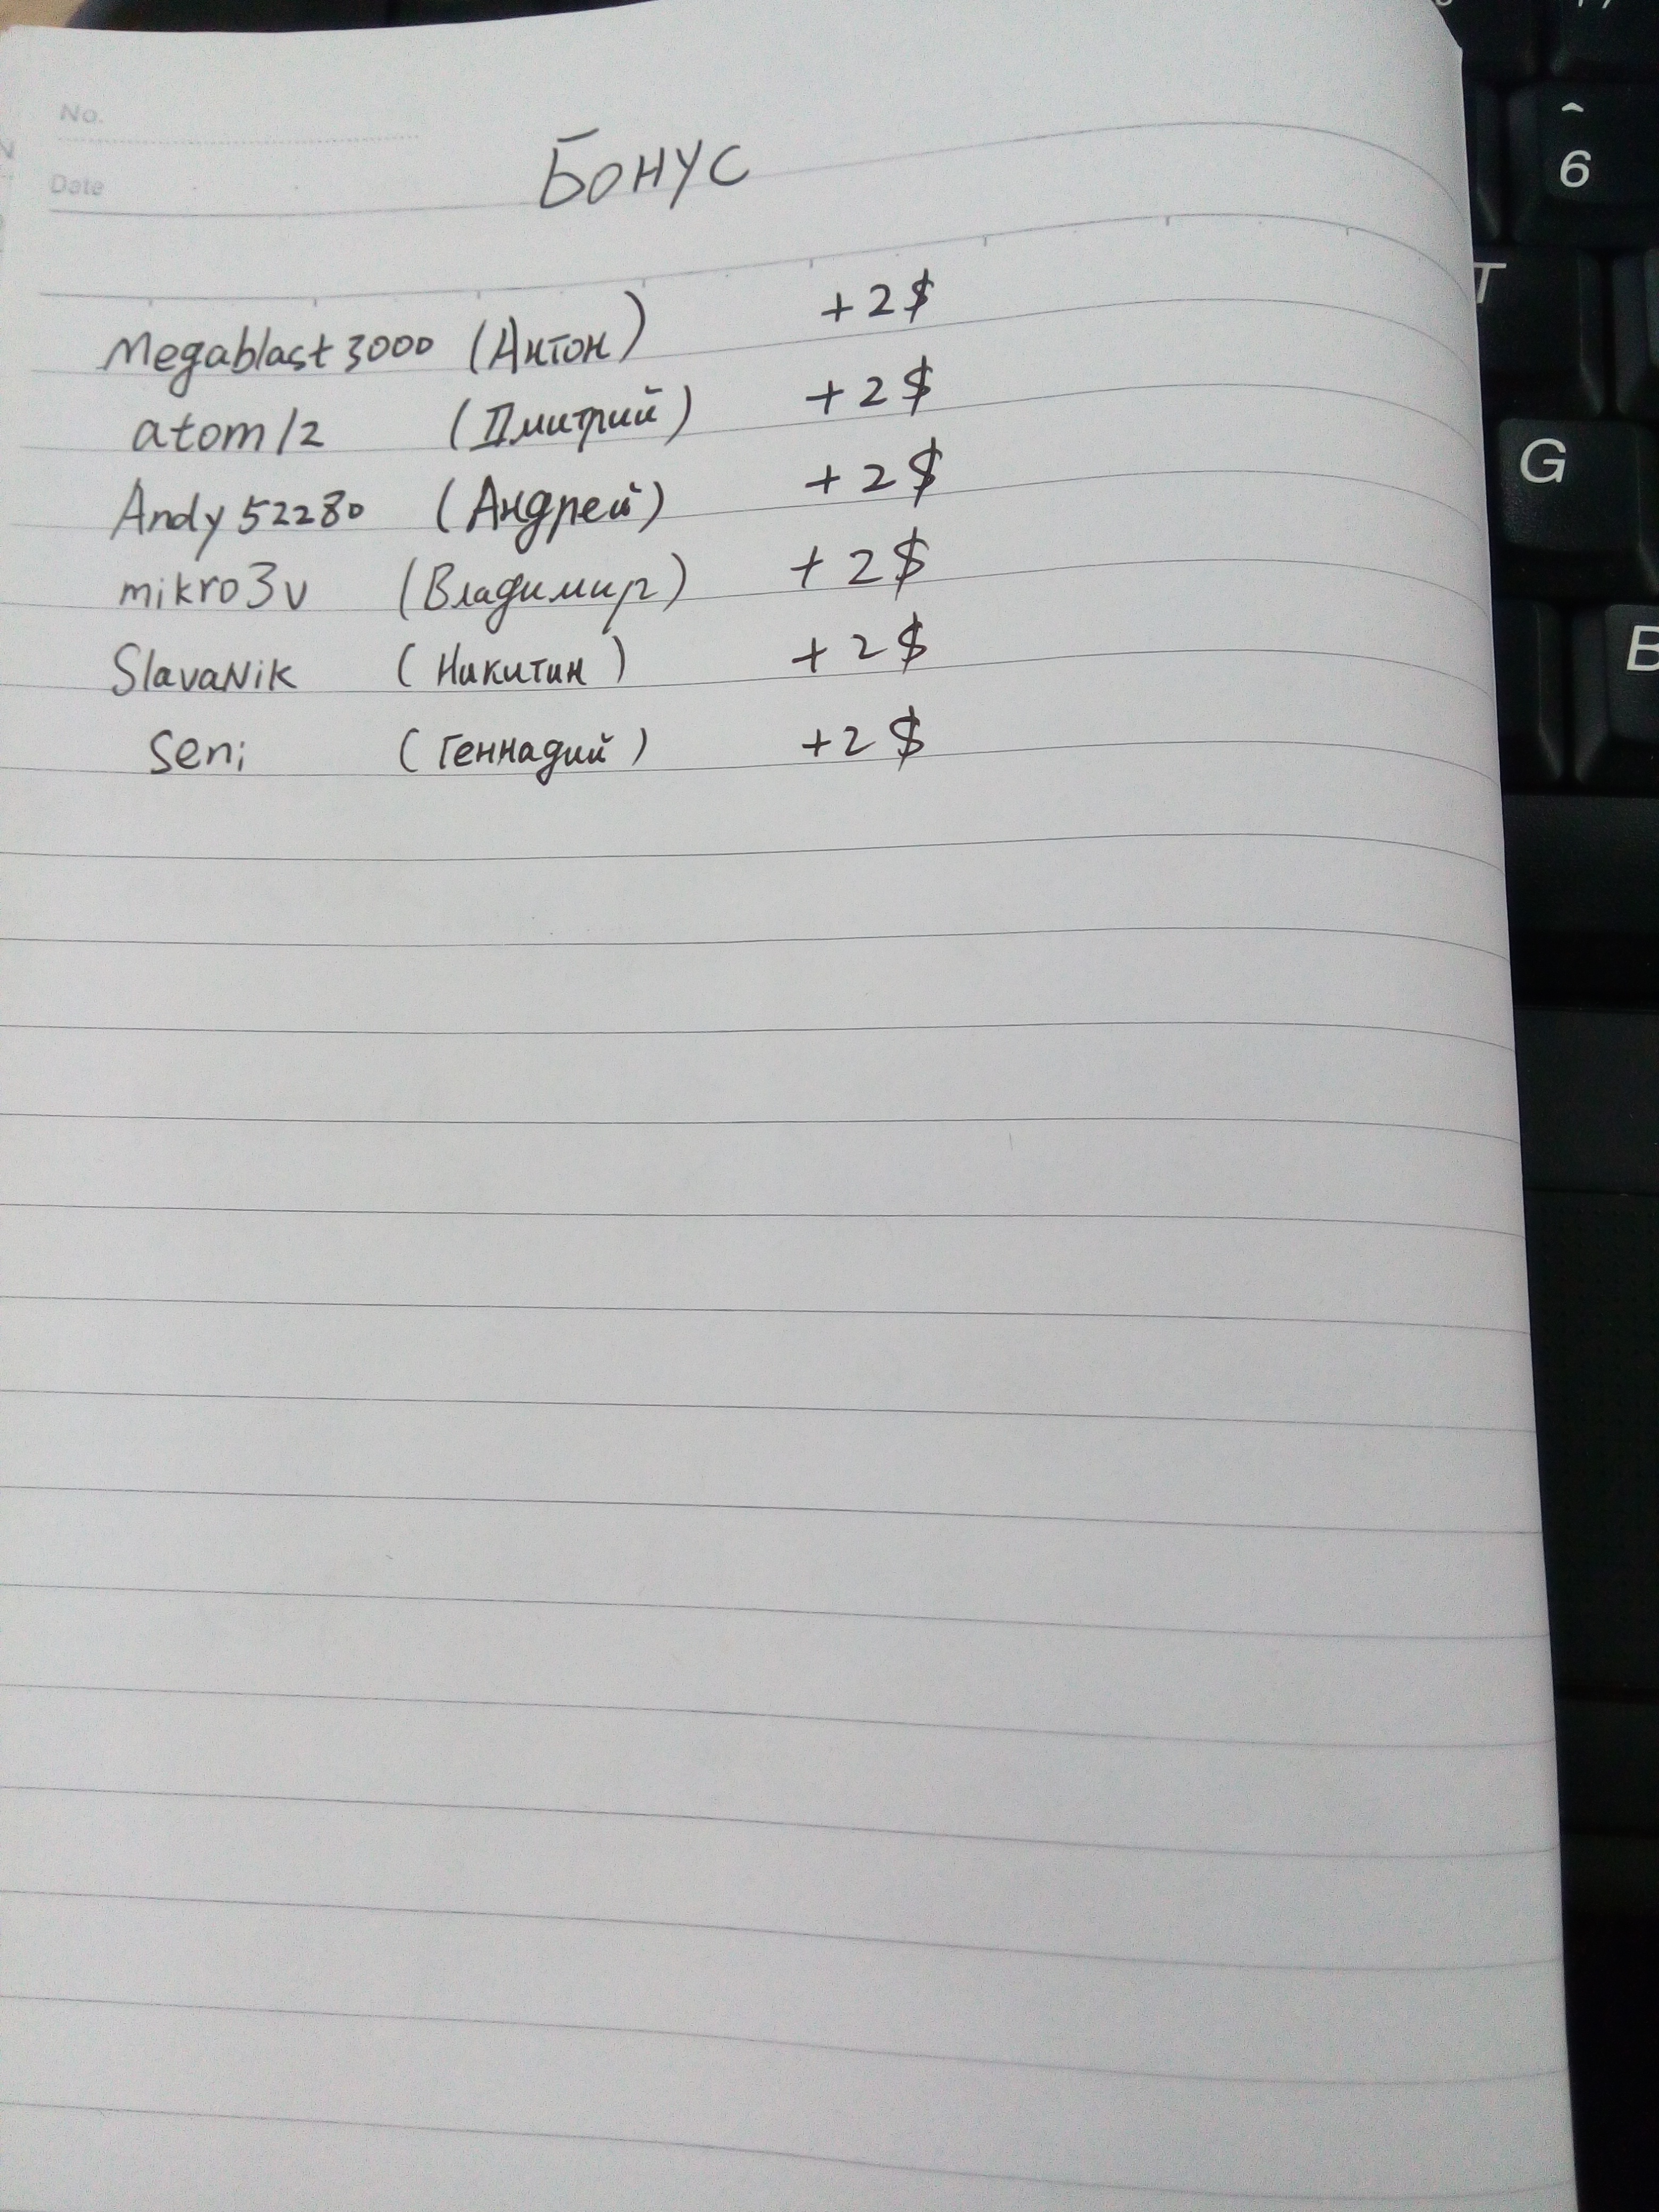 No.
Date
Бонус
Megablast3000 (Антон) +2$
atom12 (Дмитрий) +2$
Andy52280 (Андрей) +2$
mikro3v (Владимир) +2$
SlavaNik (Никитин) +2$
Seni (Геннадий) +2$
^
6
T
G
B